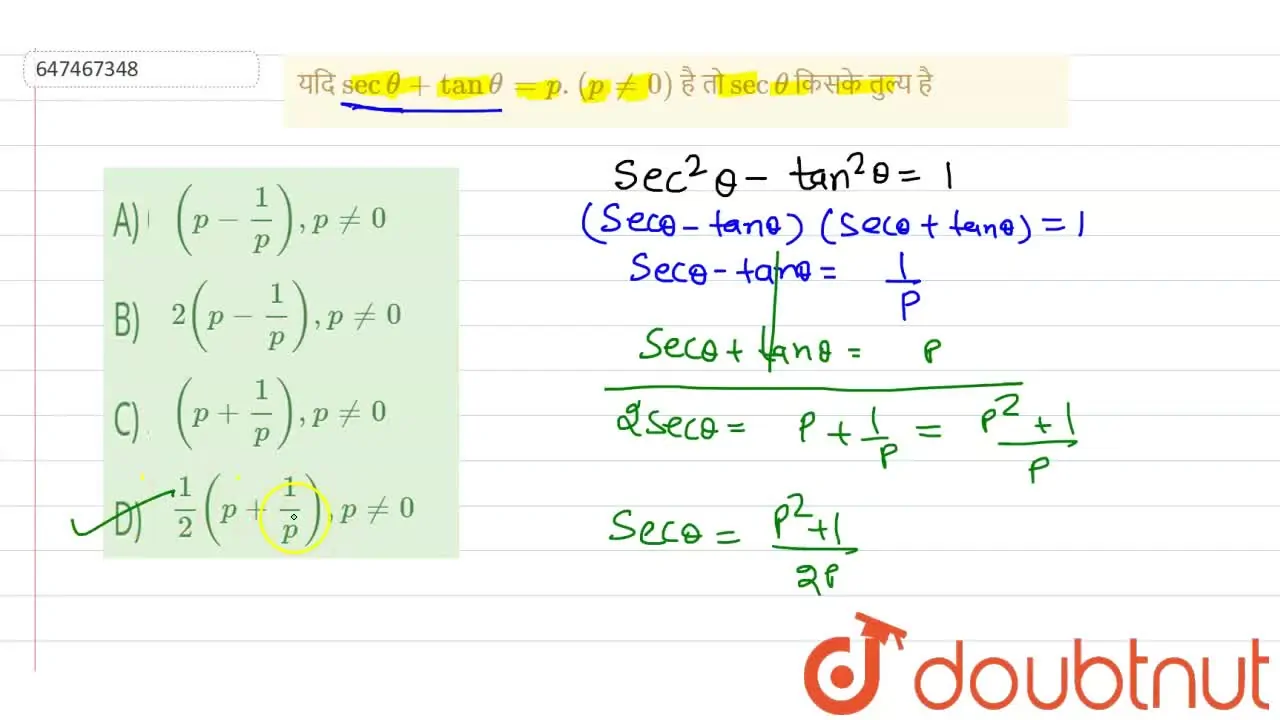 647467348
यदि sec θ + tan θ = p. (p ≠ 0) है तो sec θ किसके तुल्य है
A) (p − 1/p), p ≠ 0
B) 2(p − 1/p), p ≠ 0
C) (p + 1/p), p ≠ 0
D) 1/2(p + 1/p), p ≠ 0
Sec²θ − tan²θ = 1
(Secθ − tanθ) (Secθ + tanθ) = 1
Secθ − tanθ = 1/P
Secθ + tanθ = P
2Secθ = P + 1/P = P² + 1/P
Secθ = P² + 1/2P
doubtnut